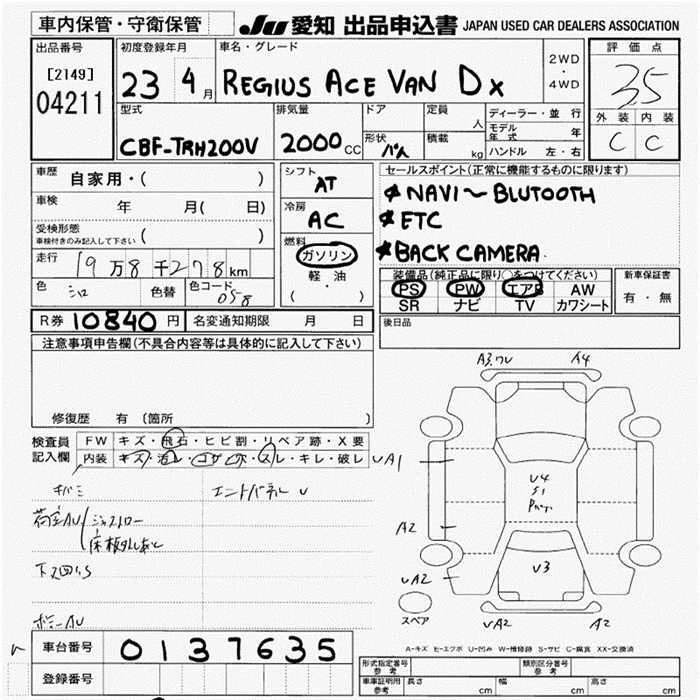 車内保管・守衛保管
JU 愛知 出品申込書 JAPAN USED CAR DEALERS ASSOCIATION
出品番号
[2149]
04211
初度登録年月
23 4月
車名・グレード
REGIUS ACE VAN DX
2WD
・
4WD
評価点
3.5
外装 内装
C C
型式
CBF-TRH200V
排気量
2000 CC
ドア
形状
バン
定員
人
積載
kg
ディーラー・並行
モデル年式 年
ハンドル 左・右
車歴 自家用・( )
車検 年 月( 日)
受検形態
車検付きのみ記入して下さい ( )
走行 19万8千278km
色 シロ 色替 色コード 058
シフト
AT
冷房
AC
燃料
ガソリン
軽・油
( )
セールスポイント(正常に機能するものに限ります)
NAVI～BLUTOOTH
ETC
BACK CAMERA
装備品(純正品に限り○をつけてください)
PS PW エアB AW
SR ナビ TV カワシート
新車保証書
有・無
後日品
R券 10840 円 名変通知期限 月 日
注意事項申告欄(不具合内容等は具体的に記入して下さい)
修復歴 有 (箇所 )
検査員
記入欄
FW キズ・飛石・ヒビ割・リペア跡・X要
内装 キズ・汚レ・コゲ・穴・スレ・キレ・破レ
キバミ
荷室AU
A3.ワレ A4
UA1
A2
UA2
U4
S1
U3
UA2 A2
スペア
A-キズ E-エクボ U-凹み W-補修跡 S-サビ C-腐食 XX-交換済
車台番号 0137635
登録番号
形式指定番号
参考
類別区分番号
参考
車庫証明用
参考
長さ cm 幅 cm 高さ cm